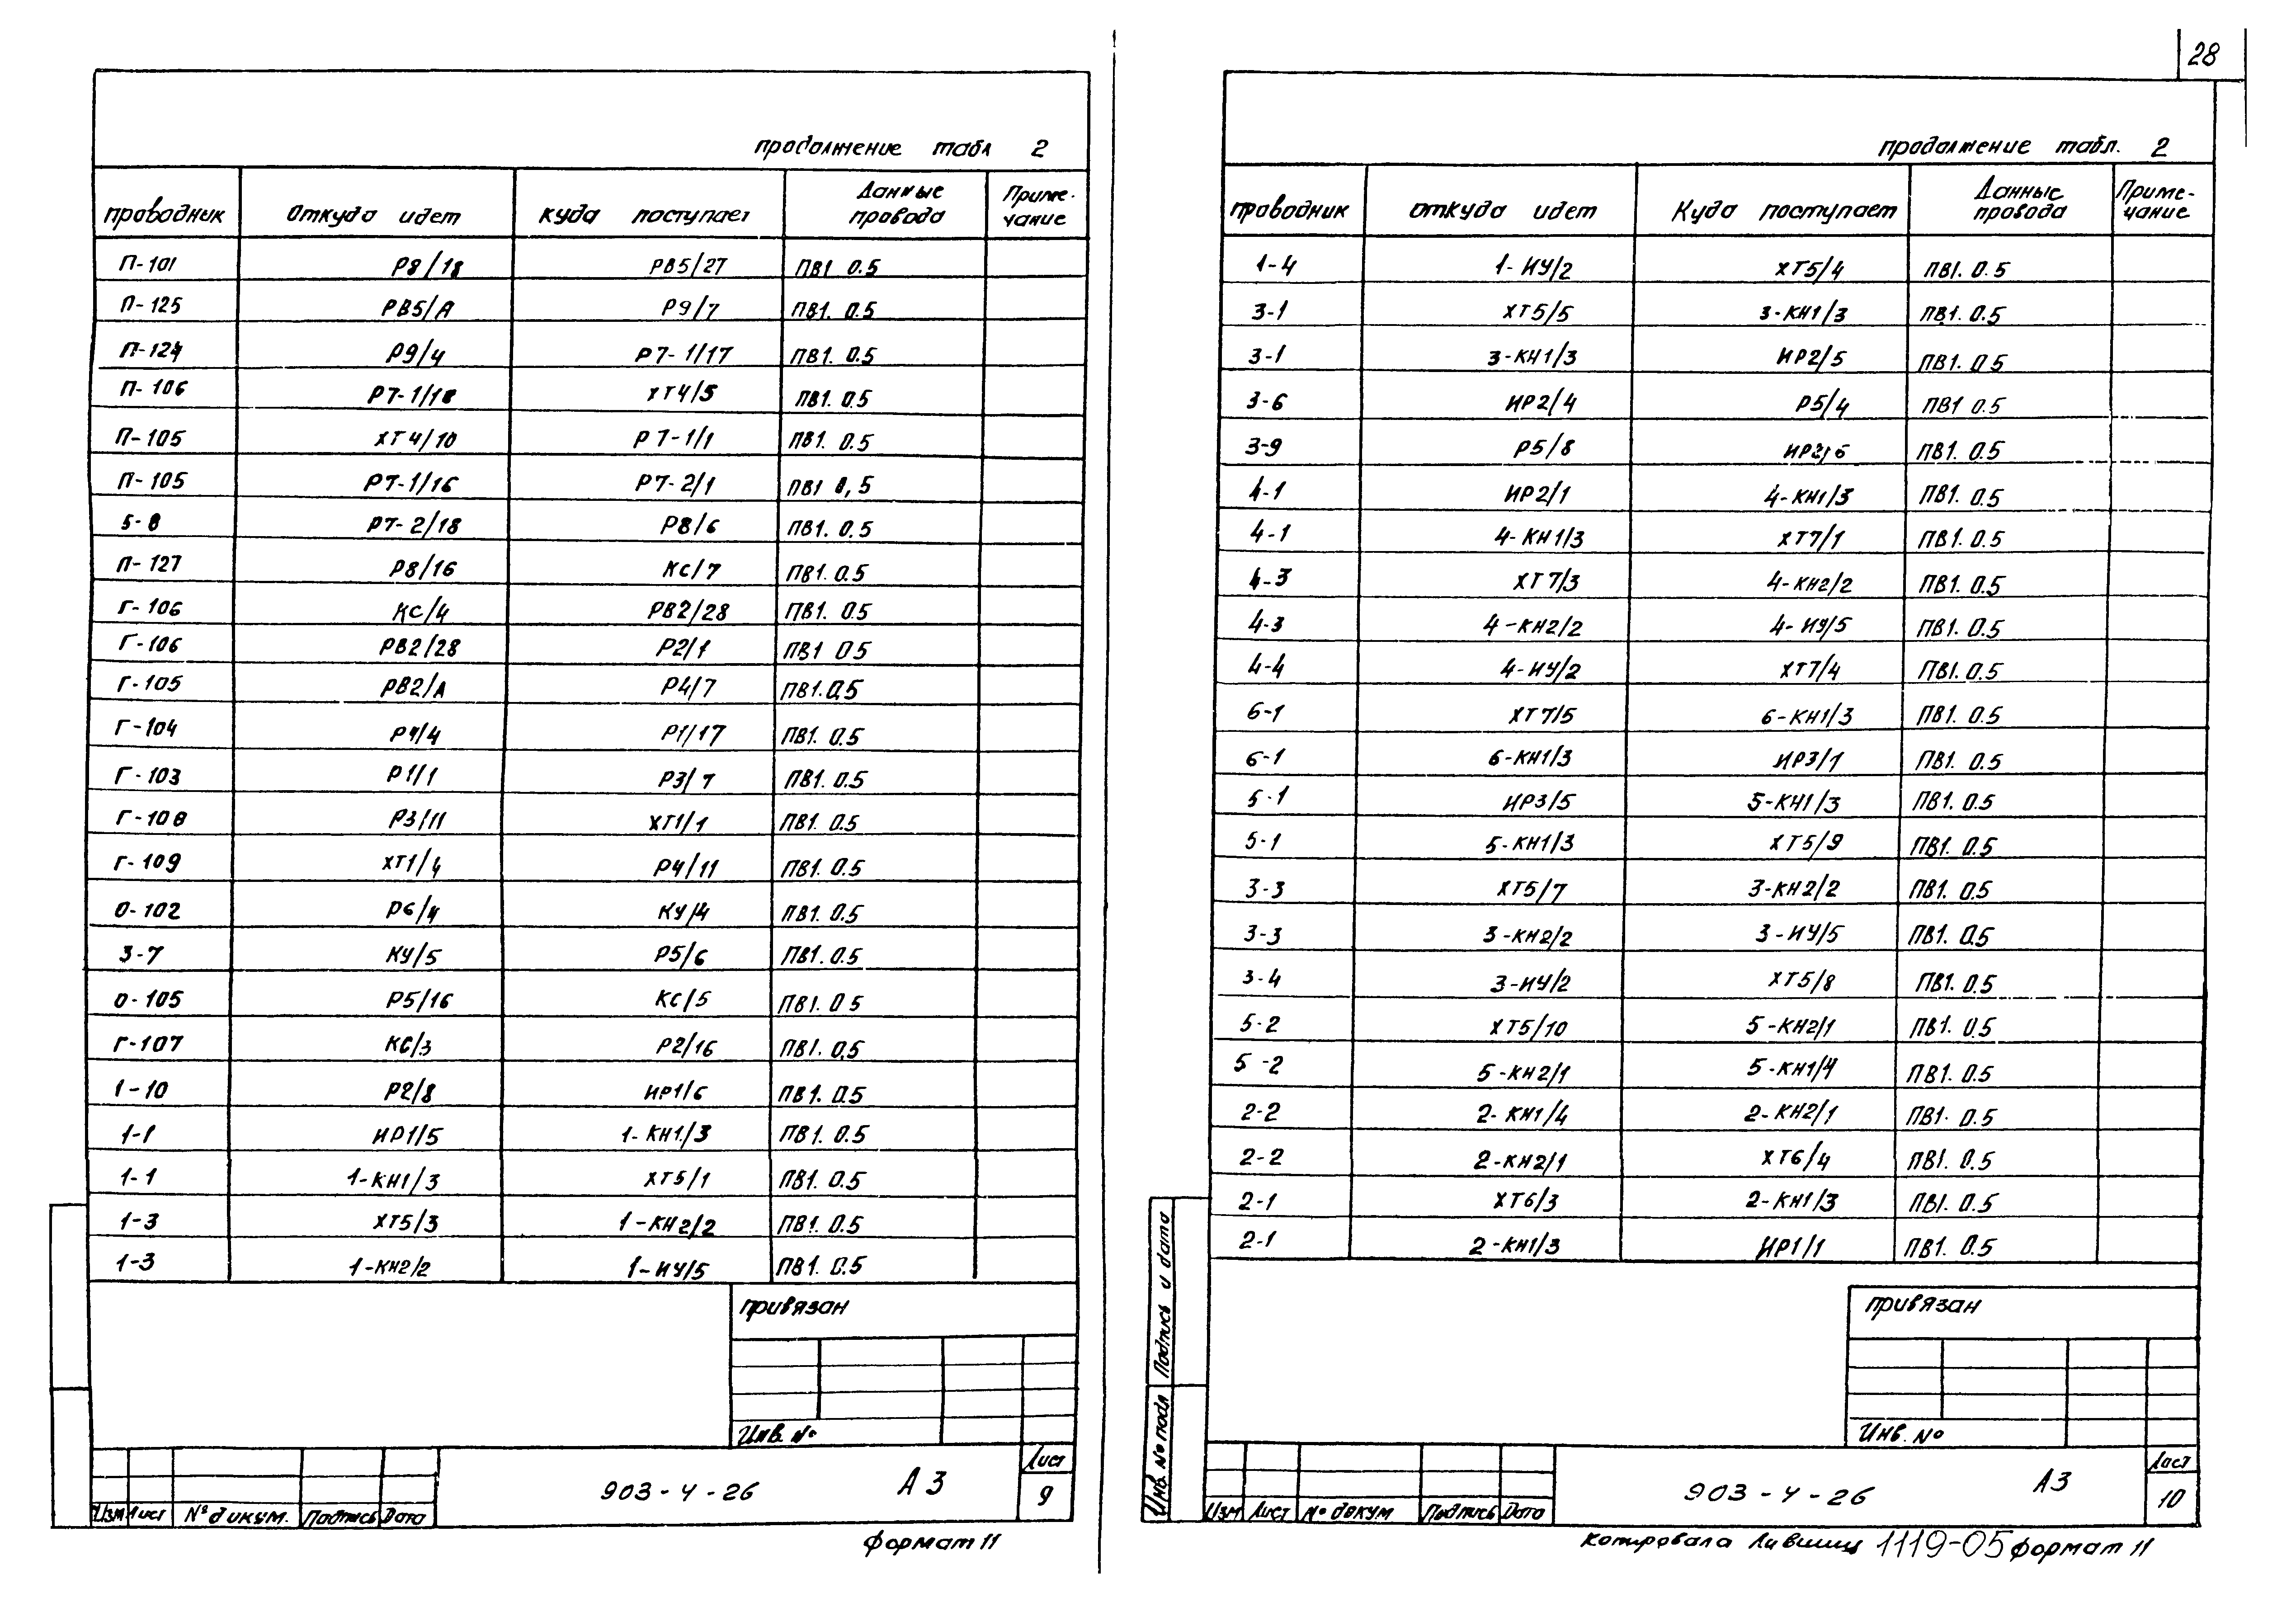 28
продолжение табл 2
проводник откуда идет куда поступает Данные провода Приме-чание
П-101 Р8/18 РВ5/27 ПВ1 0.5
П-125 РВ5/А Р9/7 ПВ1. 0.5
П-124 Р9/4 Р7-1/17 ПВ1. 0.5
П-106 Р7-1/18 ХТ4/5 ПВ1. 0.5
П-105 ХТ4/10 Р7-1/1 ПВ1. 0.5
П-105 Р7-1/16 Р7-2/1 ПВ1 0,5
5-8 Р7-2/18 Р8/6 ПВ1. 0.5
П-127 Р8/16 КС/7 ПВ1. 0.5
Г-106 КС/4 РВ2/28 ПВ1. 0.5
Г-106 РВ2/28 Р2/1 ПВ1 0.5
Г-105 РВ2/А Р4/7 ПВ1. 0.5
Г-104 Р4/4 Р1/17 ПВ1. 0.5
Г-103 Р1/1 Р3/7 ПВ1. 0.5
Г-108 Р3/11 ХТ1/1 ПВ1. 0.5
Г-109 ХТ1/4 Р4/11 ПВ1. 0.5
О-102 Р6/4 КУ/4 ПВ1. 0.5
3-7 КУ/5 Р5/6 ПВ1. 0.5
О-105 Р5/16 КС/5 ПВ1. 0 5
Г-107 КС/3 Р2/16 ПВ1. 0,5
1-10 Р2/8 ИР1/6 ПВ1. 0.5
1-1 ИР1/5 1-КН1/3 ПВ1. 0.5
1-1 1-КН1/3 ХТ5/1 ПВ1. 0.5
1-3 ХТ5/3 1-КН2/2 ПВ1. 0.5
1-3 1-КН2/2 1-ИУ/5 ПВ1. 0.5
привязан
Инв. №
903-4-26 А3 Лист 9
Изм Лист № докум. Подпись Дата
Формат 11
продолжение табл. 2
проводник откуда идет Куда поступает Данные провода Приме-чание
1-4 1-ИУ/2 ХТ5/4 ПВ1. 0.5
3-1 ХТ5/5 3-КН1/3 ПВ1. 0.5
3-1 3-КН1/3 ИР2/5 ПВ1. 0 5
3-6 ИР2/4 Р5/4 ПВ1 0.5
3-9 Р5/8 ИР2/6 ПВ1. 0.5
4-1 ИР2/1 4-КН1/3 ПВ1. 0.5
4-1 4-КН1/3 ХТ7/1 ПВ1. 0.5
4-3 ХТ7/3 4-КН2/2 ПВ1. 0.5
4-3 4-КН2/2 4-ИУ/5 ПВ1. 0.5
4-4 4-ИУ/2 ХТ7/4 ПВ1. 0.5
6-1 ХТ7/5 6-КН1/3 ПВ1. 0.5
6-1 6-КН1/3 ИР3/1 ПВ1. 0.5
5-1 ИР3/5 5-КН1/3 ПВ1. 0.5
5-1 5-КН1/3 ХТ5/9 ПВ1. 0.5
3-3 ХТ5/7 3-КН2/2 ПВ1. 0.5
3-3 3-КН2/2 3-ИУ/5 ПВ1. 0.5
3-4 3-ИУ/2 ХТ5/8 ПВ1. 0.5
5-2 ХТ5/10 5-КН2/1 ПВ1. 0.5
5-2 5-КН2/1 5-КН1/4 ПВ1. 0.5
2-2 2-КН1/4 2-КН2/1 ПВ1. 0.5
2-2 2-КН2/1 ХТ6/4 ПВ1. 0.5
2-1 ХТ6/3 2-КН1/3 ПВ1. 0.5
2-1 2-КН1/3 ИР1/1 ПВ1. 0.5
привязан
Инв. №
Инв. № подл Подпись и дата
903-4-26 А3 Лист 10
Изм Лист № докум Подпись Дата
Копировала Лившиц 1119-05 формат 11